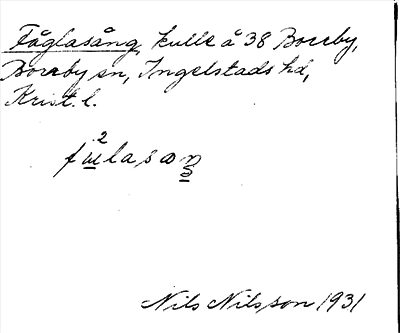 Fåglasång, kulle å 38 Borrby,
Borrby sn, Ingelstads hd,
Krist. l.
Nils Nilsson 1931